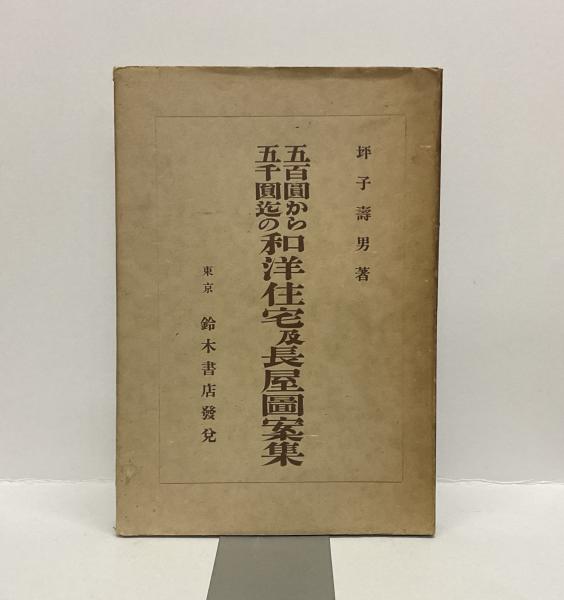 坪子壽男著
五百圓から
五千圓迄の
和洋住宅及長屋圖案集
東京
鈴木書店發兌